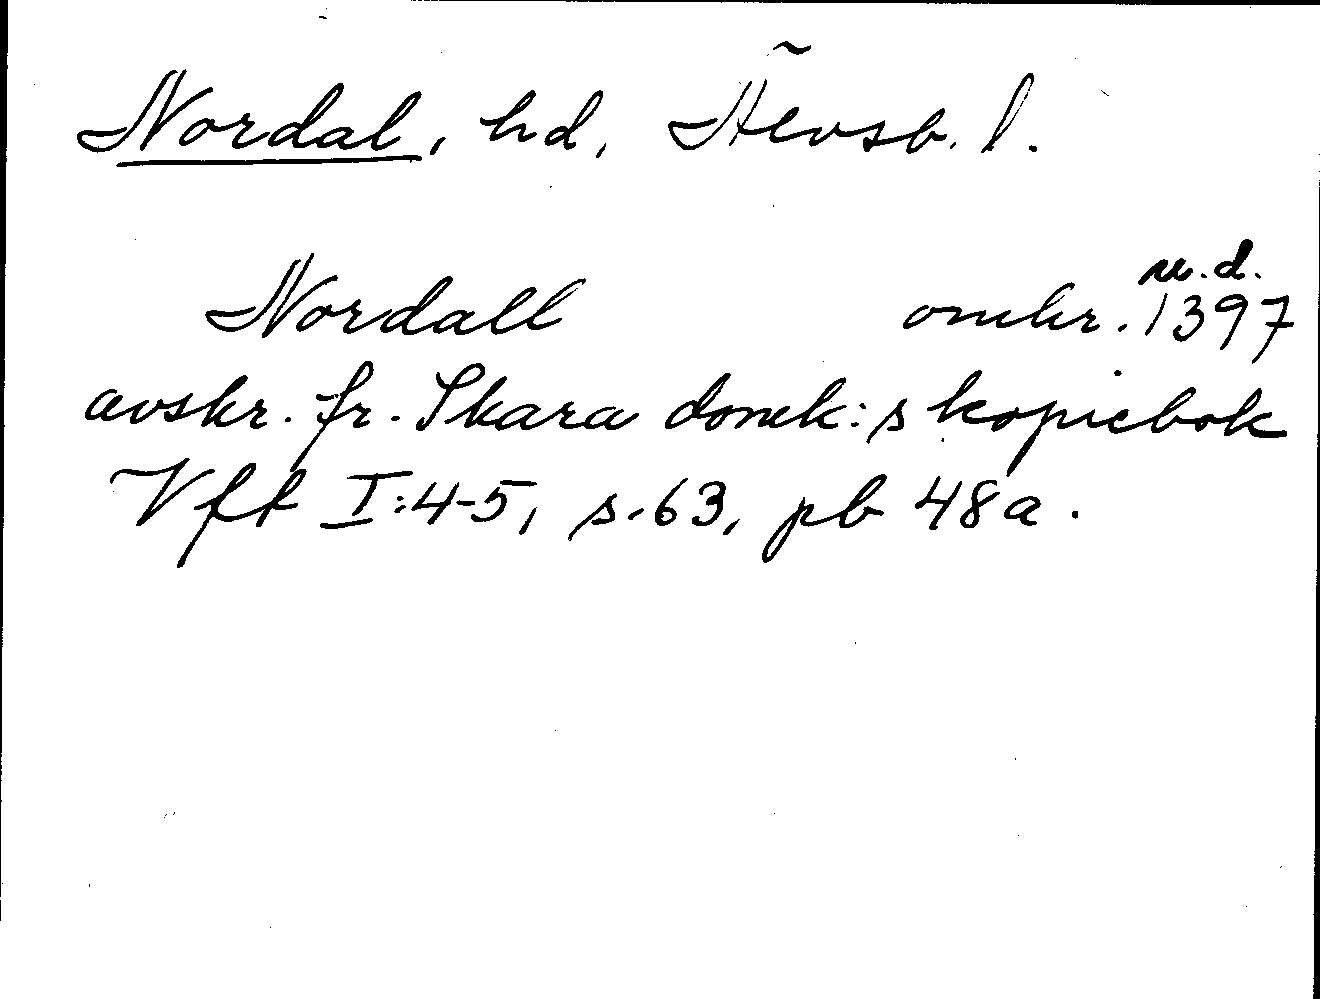 Nordal, hd, Älvsb. l.
u.d.
Nordall omkr. 1397
avskr. fr. Skara domk:s kopiebok
Vft I:4-5, s. 63, pb 48a.